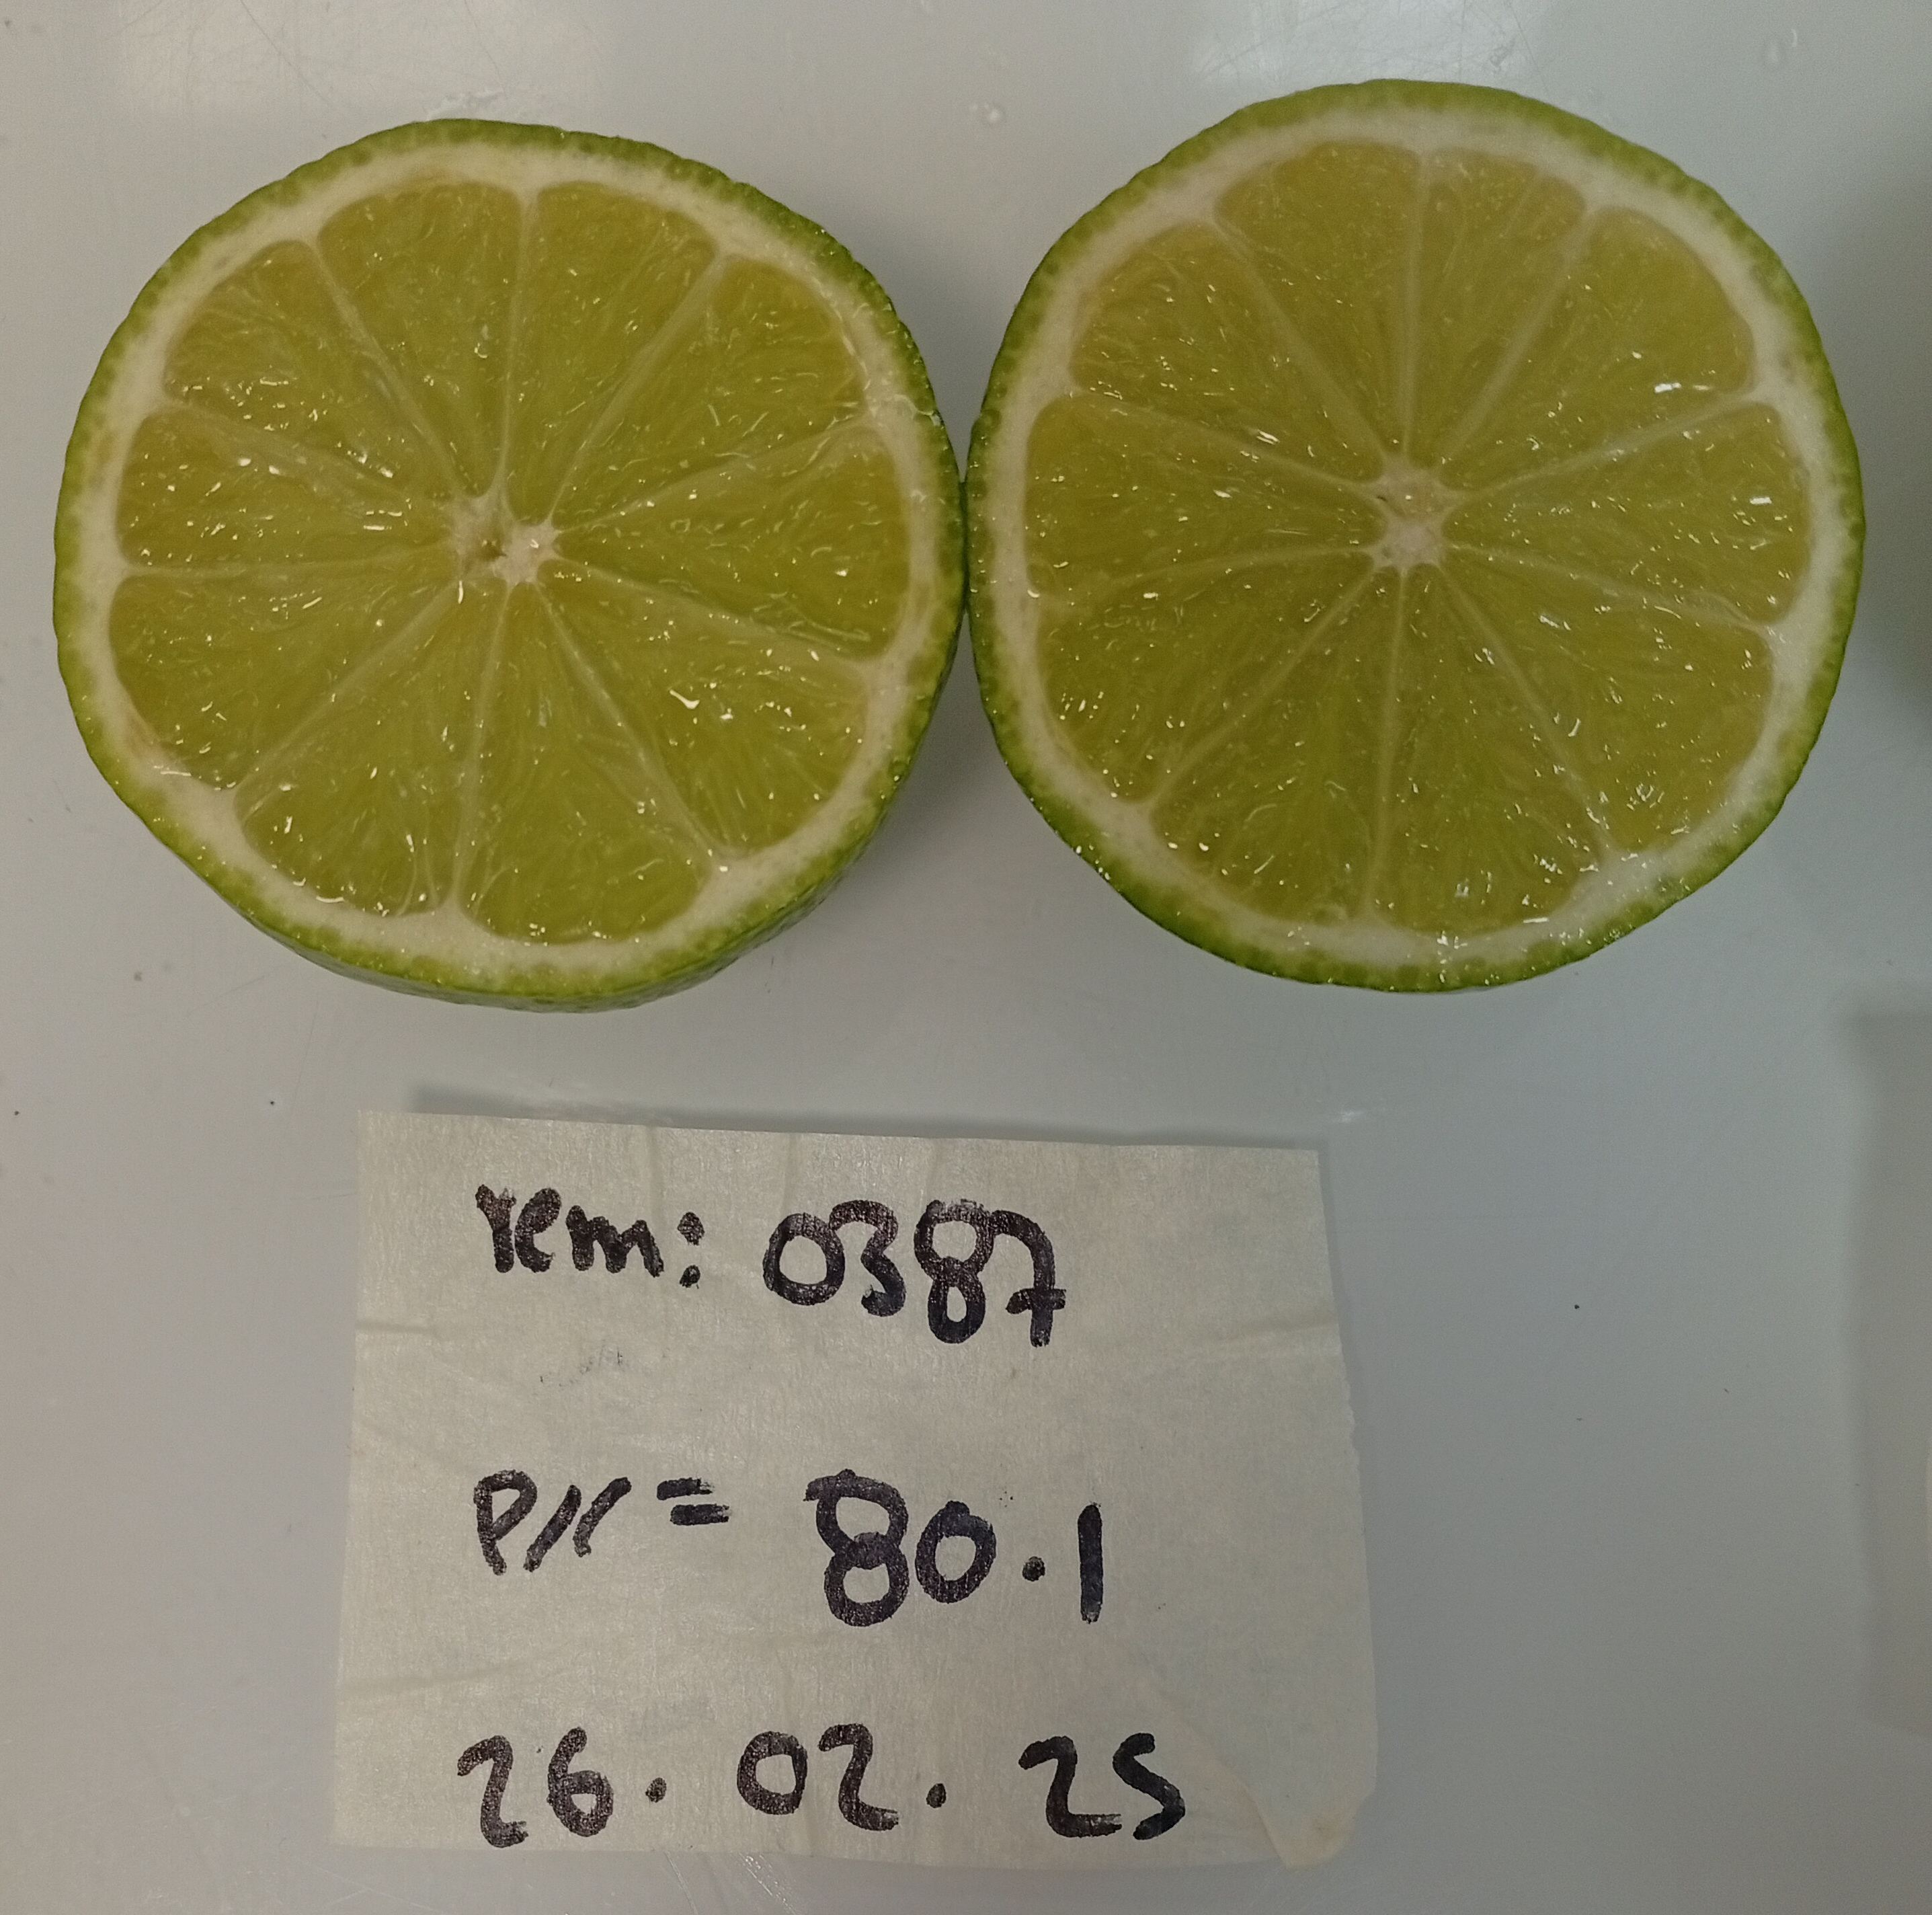 rem: 0387
Pr = 80.1
26.02.25